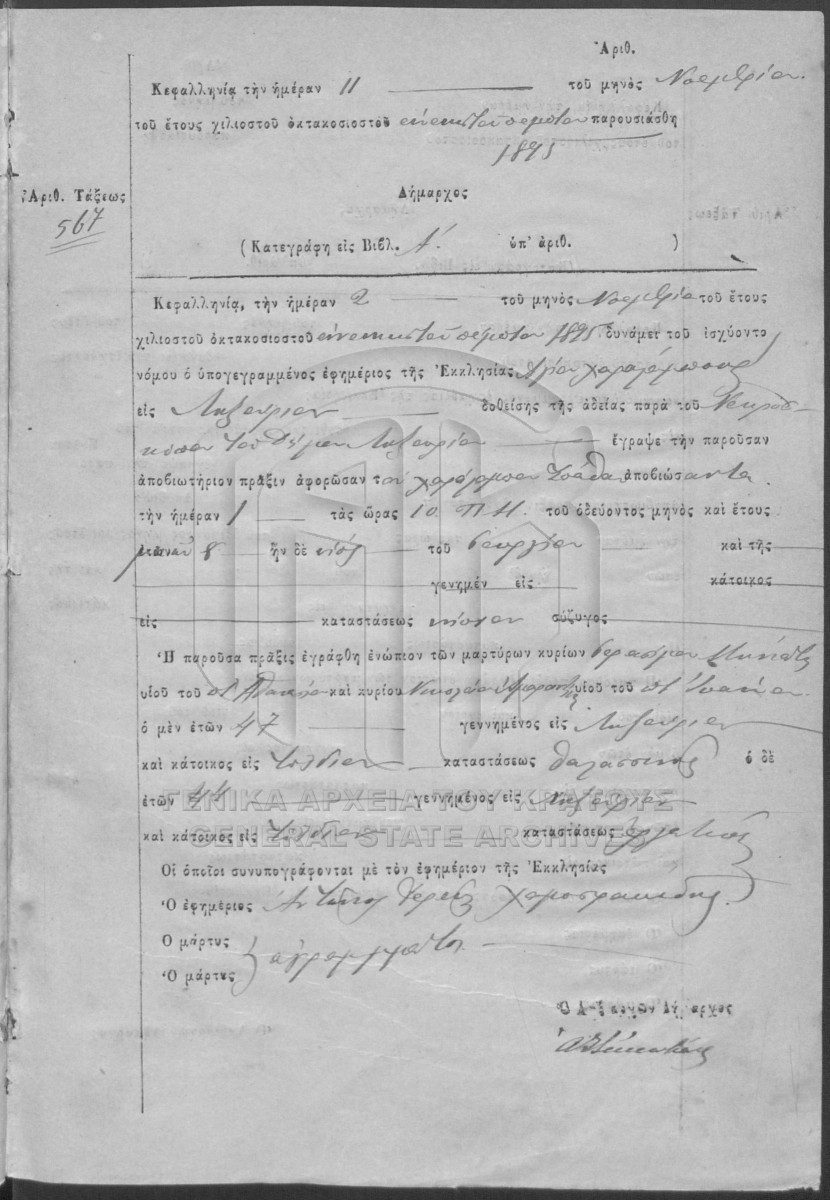 Ἀριθ.
Κεφαλληνίᾳ τὴν ἡμέραν 11 τοῦ μηνὸς Νοεμβρίου.
τοῦ ἔτους χιλιοστοῦ ὀκτακοσιοστοῦ ἐννενηκοστοῦ πέμπτου παρουσιάσθη
1895
Ἀριθ. Τάξεως
567
Δήμαρχος
(Κατεγράφη εἰς Βιβλ. Α΄. ὑπ' ἀριθ. )
Κεφαλληνίᾳ, τὴν ἡμέραν 2 τοῦ μηνὸς Νοεμβρίου τοῦ ἔτους
χιλιοστοῦ ὀκτακοσιοστοῦ ἐννενηκοστοῦ πέμπτου 1895 δυνάμει τοῦ ἰσχύοντο
νόμου ὁ ὑπογεγραμμένος ἐφημέριος τῆς Ἐκκλησίας Ἁγίου Χαραλάμπους
εἰς Ληξούριον δοθείσης τῆς ἀδείας παρὰ τοῦ Νεκροσ-
κόπου τοῦ Δήμου Ληξουρίου ἔγραψε τὴν παροῦσαν
ἀποβιωτήριον πρᾶξιν ἀφορῶσαν τὸν Χαράλαμπον ἀποβιώσαντα
τὴν ἡμέραν 1 τὰς ὥρας 10 Π.Μ. τοῦ ὁδεύοντος μηνὸς καὶ ἔτους
μηνῶν 8 ἦν δὲ υἱὸς τοῦ Γεωργίου καὶ τῆς
γενημέν εἰς κάτοικος
εἰς καταστάσεως νήπιον σύζυγος
Ἡ παροῦσα πρᾶξις ἐγράφθη ἐνώπιον τῶν μαρτύρων κυρίων Γερασίμου
υἱοῦ τοῦ καὶ κυρίου Νικολάου υἱοῦ τοῦ
ὁ μὲν ἐτῶν 47 γεννημένος εἰς Ληξούριον
καὶ κάτοικος εἰς ἴδιον καταστάσεως θαλασσινὸς ὁ δὲ
ἐτῶν 44 γεννημένος εἰς Ληξούριον
καὶ κάτοικος εἰς ἴδιον καταστάσεως ἐργατικὸς
Οἱ ὁποῖοι συνυπογράφονται μὲ τὸν ἐφημέριον τῆς Ἐκκλησίας
Ὁ ἐφημέριος Ἀντώνιος Ἱερεὺς
Ὁ μάρτυς
Ὁ μάρτυς } ἀγράμματοι
Ὁ Ληξιαρχῶν Δήμαρχος
ΓΕΝΙΚΑ ΑΡΧΕΙΑ ΤΟΥ ΚΡΑΤΟΥΣ
GENERAL STATE ARCHIVES